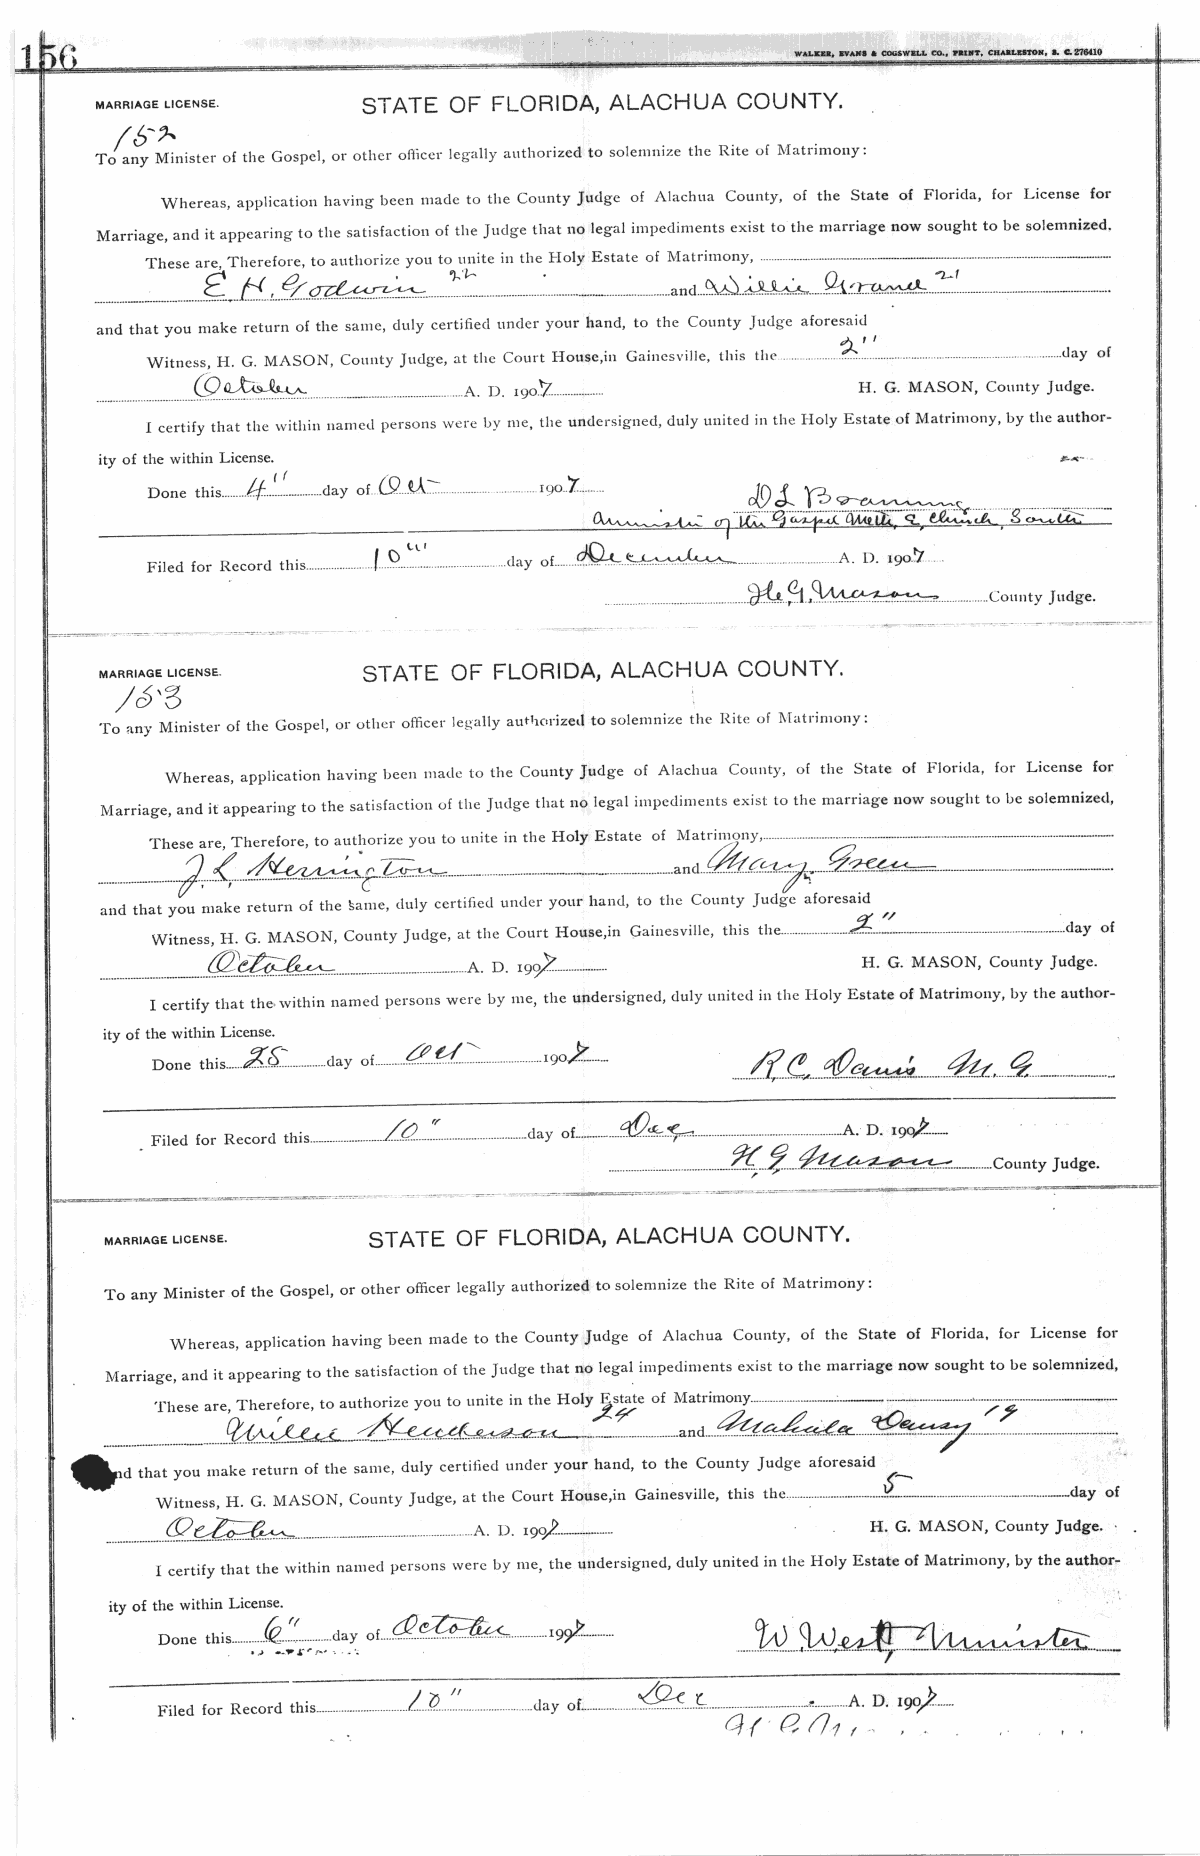 156
WALKER, EVANS & COGSWELL CO., PRINT, CHARLESTON, S. C. 276410
MARRIAGE LICENSE. STATE OF FLORIDA, ALACHUA COUNTY.
152
To any Minister of the Gospel, or other officer legally authorized to solemnize the Rite of Matrimony:
Whereas, application having been made to the County Judge of Alachua County, of the State of Florida, for License for
Marriage, and it appearing to the satisfaction of the Judge that no legal impediments exist to the marriage now sought to be solemnized.
These are, Therefore, to authorize you to unite in the Holy Estate of Matrimony,
E H. Godwin 22 and Willie 21
and that you make return of the same, duly certified under your hand, to the County Judge aforesaid
Witness, H. G. MASON, County Judge, at the Court House, in Gainesville, this the 2" day of
October A. D. 1907 H. G. MASON, County Judge.
I certify that the within named persons were by me, the undersigned, duly united in the Holy Estate of Matrimony, by the author-
ity of the within License.
Done this 4" day of Oct 1907
D L
a minister of the Gospel Meth. E. Church, South
Filed for Record this 10" day of December A. D. 1907
H. G. Mason County Judge.
MARRIAGE LICENSE. STATE OF FLORIDA, ALACHUA COUNTY.
153
To any Minister of the Gospel, or other officer legally authorized to solemnize the Rite of Matrimony:
Whereas, application having been made to the County Judge of Alachua County, of the State of Florida, for License for
Marriage, and it appearing to the satisfaction of the Judge that no legal impediments exist to the marriage now sought to be solemnized,
These are, Therefore, to authorize you to unite in the Holy Estate of Matrimony,
J. L. Herrington and Mary Green
and that you make return of the same, duly certified under your hand, to the County Judge aforesaid
Witness, H. G. MASON, County Judge, at the Court House, in Gainesville, this the 2" day of
October A. D. 1907 H. G. MASON, County Judge.
I certify that the within named persons were by me, the undersigned, duly united in the Holy Estate of Matrimony, by the author-
ity of the within License.
Done this 25 day of Oct 1907 R. C. Davis M. G.
Filed for Record this 10" day of Dec A. D. 1907
H. G. Mason County Judge.
MARRIAGE LICENSE. STATE OF FLORIDA, ALACHUA COUNTY.
To any Minister of the Gospel, or other officer legally authorized to solemnize the Rite of Matrimony:
Whereas, application having been made to the County Judge of Alachua County, of the State of Florida, for License for
Marriage, and it appearing to the satisfaction of the Judge that no legal impediments exist to the marriage now sought to be solemnized,
These are, Therefore, to authorize you to unite in the Holy Estate of Matrimony
Willie Henderson 24 and Mahala 19
and that you make return of the same, duly certified under your hand, to the County Judge aforesaid
Witness, H. G. MASON, County Judge, at the Court House, in Gainesville, this the 5 day of
October A. D. 1907 H. G. MASON, County Judge.
I certify that the within named persons were by me, the undersigned, duly united in the Holy Estate of Matrimony, by the author-
ity of the within License.
Done this 6" day of October 1907 W. West, Minister
Filed for Record this 10" day of Dec A. D. 1907